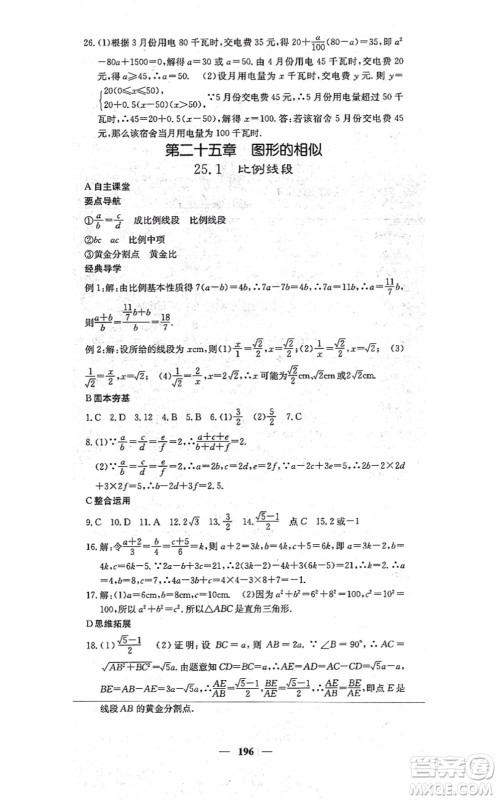 26. (1)根据 3 月份用电 80 千瓦时,交电费 35 元,得 20+a/100(80−a)=35,即 a²
−80a+1500=0. 解得 a=30 或 a=50. 由 4 月份用电 45 千瓦时,交电费
20 元,得 a≥45,∴a=50. (2)设月用电量为 x 千瓦时,交电费 y 元. 则 y=
{20(0≤x≤50), 20+0.5(x−50)(x>50), ∵5 月份交电费 45 元,∴5 月份用电量超过 50 千瓦
时,∴45=20+0.5(x−50),解得 x=100. 答:若该宿舍 5 月份交电费 45
元,那么该宿舍当月用电量为 100 千瓦时.
第二十五章 图形的相似
25.1 比例线段
A 自主课堂
要点导航
①a/b=c/d 成比例线段 比例线段
②bc ac 比例中项
③黄金分割点 黄金比
经典导学
例 1:解:由比例基本性质得 7(a−b)=4b,∴7a−7b=4b,∴7a=11b,∴a=11/7 b,
则(a+b)/b=(11/7 b+b)/b=18/7.
例 2:解:设所给的线段为 xcm,则(1)x/1=√2/2,x=√2/2;(2)1/x=√2/2,x=√2;(3)
1/√2=x/2,x=√2;(4)1/√2=2/x,x=2√2. 答:可添加线段的长度为√2/2cm,√2cm
或 2√2cm.
B 固本夯基
1. C 2. D 3. 12 4. D 5. C 6. (1)3/2 (2)5/2 7. C
8. (1)∵a/b=c/d=e/f=2,∴(a+c+e)/(b+d+f)=2.
(2)∵a/b=c/d=e/f=2,∴a=2b,c=2d,e=2f,∴a−2c+3e=2b−2×2d
+3×2f=2(b−2d+3f)=2×5=10.
C 整合运用
9. C 10. A 11. D 12. 4√3 13. 3/2 14. (√5−1)/2 点 C 15. 2或−1
16. 解:令(a+2)/3=b/4=(c+5)/6=k,则 a+2=3k,b=4k,c+5=6k,∴a=3k−2,b=
4k,c=6k−5. ∵2a−b+3c=21,∴2(3k−2)−4k+3(6k−5)=21,∴k=2,
∴a=6−2=4,b=8,c=7,∴a:b:c=4:8:7.
17. 解:(1)a=6cm,b=8cm,c=10cm. (2)因为 a²+b²=36+64=100,c²=
100,所以 a²+b²=c²,所以△ABC是直角三角形.
D 思维拓展
18. (1)(√5−1)/2 (2)证明:设 BC=a,则 AB=2a. ∵∠B=90°,∴AC=
√(AB²+BC²)=√5a. 由题意知 CD=BC=a,AE=AD,∴AE=AD=AC−
CD=√5a−a,∴BE=AB−AE=3a−√5a,∴AE/AB=BE/AE=(√5−1)/2,即点 E是
线段 AB 的黄金分割点.
196